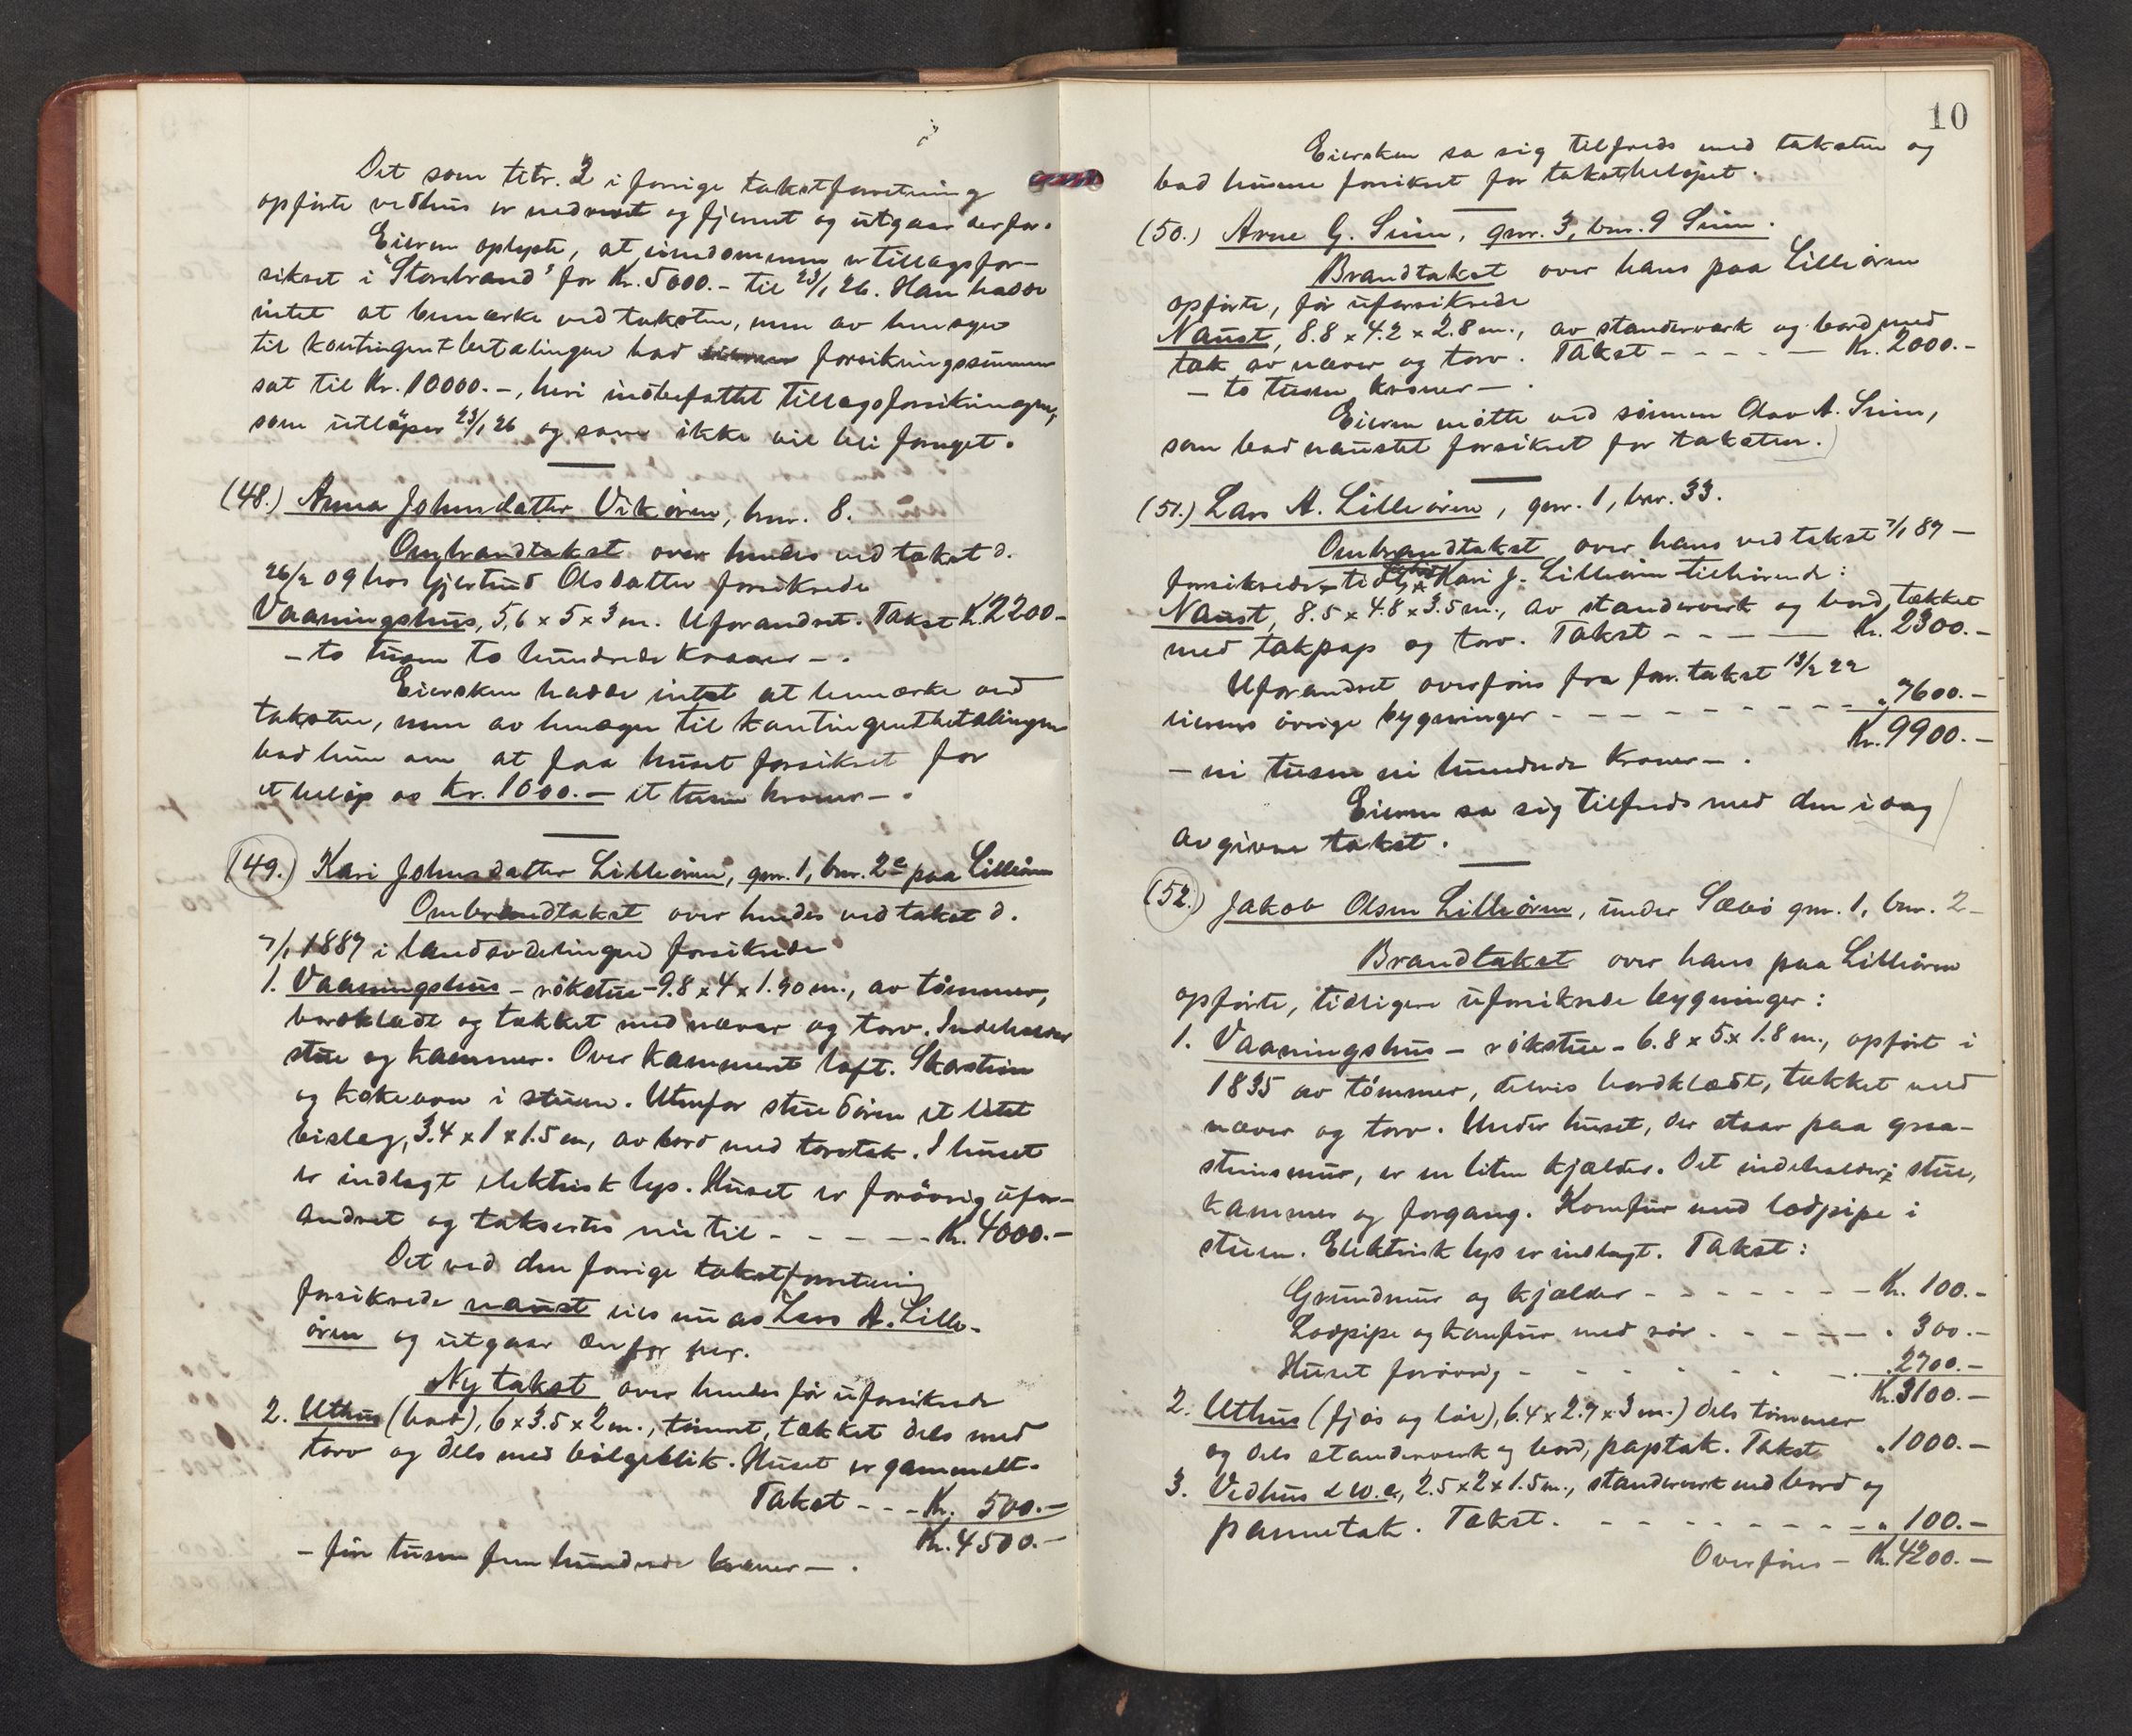 Det som litr. 2 i forrige takstforretning
opførte vedhus er nedrevet og fjernet og utgaar derfor.
Eieren oplyste, at eiendommen er tillægsfor-
sikret i "Storebrand" for Kr. 5000.- til 23/1 26. Han hadde
intet at bemærke ved taksten, men av hensyn
til kontingentbetalingen bad forsikringssummen
sat til Kr. 10000.-, heri indbefattet tillægsforsikringen,
som utløper 23/1 26 og som ikke vil bli fornyet.
(48.) Anna Johnsdatter Vikøren, bnr. 8.
Ombrandtakst over hendes ved takst d.
26/2 09 hos Gjertrud Olsdatter forsikrede
Vaaningshus, 5,6 x 5 x 3 m. Uforandret. Takst Kr. 2200-
- to tusen to hundrede kroner - .
Eiersken hadde intet at bemærke ved
taksten, men av hensyn til kontingentbetalingen
bad hun om at faa huset forsikret for
et beløp av Kr. 1000.- et tusen kroner - .
(49.) Kari Johnsdatter Lilleøren, gnr. 1, bnr. 2c paa Lilleøren
Ombrandtakst over hendes ved takst d.
7/1 1887 i landavdelingen forsikrede
1. Vaaningshus - røkstue - 9.8 x 4 x 1.90 m., av tømmer,
bordklædt og tækket med næver og torv. Indeholder
stue og kammer. Over kammeret loft. Skorstein
og kokeovn i stuen. Utenfor stuedøren et litet
bislag, 3.4 x 1 x 1.5 m, av bord med torvtak. I huset
er indlagt elektrisk lys. Huset er forøvrig ufor-
andret og takseres nu til - - - - - - Kr. 4000.-
Det ved den forrige takstforretning
forsikrede naust eies nu av Lars A. Lille-
øren og utgaar derfor her.
Ny takst over hendes før uforsikrede
2. Uthus (bod), 6 x 3.5 x 2 m., tømret, tækket dels med
torv og dels med bølgeblik. Huset er gammelt.
Takst - - - Kr. 500.-
Kr. 4500.-
- fire tusen fem hundrede kroner - .
10
Eiersken sa sig tilfreds med taksten og
bad husene forsikret for takstbeløpet.
(50.) Arne G. Siem, gnr. 3, bnr. 9 Siem.
Brandtakst over hans paa Lilleøren
opførte, før uforsikrede
Naust, 8.8 x 4.2 x 2.8 m., av standerverk og bord med
tak av næver og torv. Takst - - - - - Kr. 2000.-
- to tusen kroner - .
Eieren møtte ved sønnen Olav A. Siem,
som bad naustet forsikret for taksten.
(51.) Lars A. Lilleøren, gnr. 1, bnr. 33.
Ombrandtakst over hans ved takst 7/1 87 -
forsikrede, tidligere Kari J. Lilleøren tilhørende:
Naust, 8.5 x 4.8 x 3.5 m., av standerverk og bord, tækket
med takpap og torv. Takst - - - - - Kr. 2300.-
Uforandret overføres fra forr. takst 13/2 22
eierens øvrige bygninger - - - - - - - - - „ 7600.-
Kr. 9900.-
- ni tusen ni hundrede kroner - .
Eieren sa sig tilfreds med den idag
avgivne takst.
(52.) Jakob Olsen Lilleøren, under Sæbø gnr. 1, bnr. 2-
Brandtakst over hans paa Lilleøren
opførte, tidligere uforsikrede bygninger:
1. Vaaningshus - røkstue - 6.8 x 5 x 1.8 m., opført i
1835 av tømmer, delvis bordklædt, tækket med
næver og torv. Under huset, der staar paa graa-
steinsmur, er en liten kjælder. Det indeholder: stue,
kammer og forgang. Komfur med lodpipe i
stuen. Elektrisk lys er indlagt. Takst:
Grundmur og kjælder - - - - - - - Kr. 100.-
Lodpipe og komfur med rør - - - - - „ 300.-
Huset forøvrig - - - - - - - - „ 2700.-
Kr. 3100.-
2. Uthus (fjøs og løe), 6.4 x 2.7 x 3 m.) dels tømmer
og dels standerverk og bord, paptak. Takst „ 1000.-
3. Vedhus & w.c., 2.5 x 2 x 1.5 m., standerverk med bord og
pannetak. Takst. - - - - - - - - - „ 100.-
Overføres - Kr. 4200.-